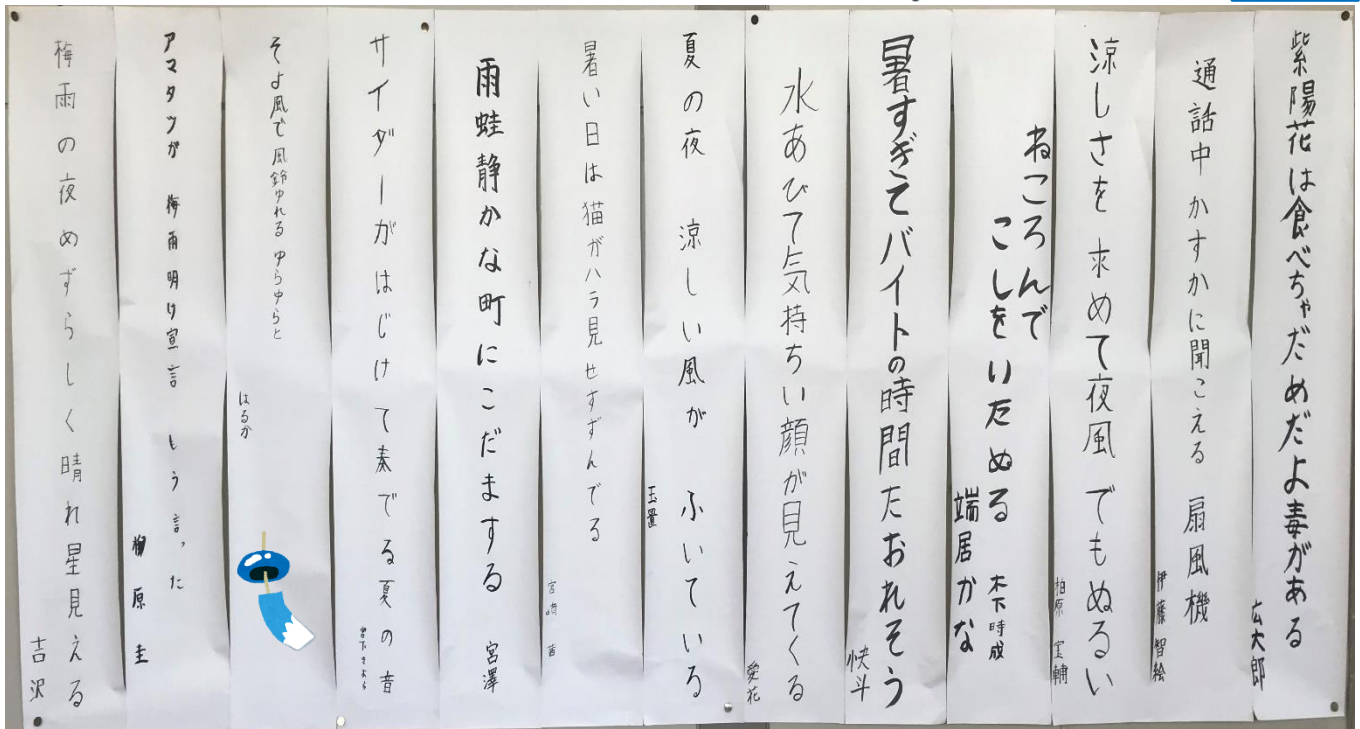 紫陽花は食べちゃだめだよ毒がある
広太郎
通話中 かすかに聞こえる 扇風機
伊藤 智絵
涼しさを 求めて夜風 でもぬるい
柏原 宝輔
ねころんで
こしをいたぬる
端居かな
木下 時成
暑すぎてバイトの時間たおれそう
快斗
水あびて気持ちい顔が見えてくる
愛花
夏の夜 涼しい風が ふいている
玉置
暑い日は猫がハラ見せすずんでる
宮崎
雨蛙静かな町にこだまする
宮澤
サイダーがはじけて奏でる夏の音
そよ風で風鈴ゆれる ゆらゆらと
はるか
アマタツが 梅雨明け宣言 もう言った
柳原 圭
梅雨の夜めずらしく晴れ星見える
吉沢